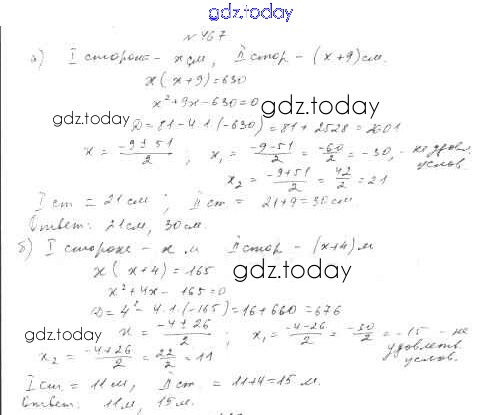 gdz.today
№ 467
а) I сторона - x см, II стор - (x+9) см.
x(x+9)=630
x²+9x-630=0
gdz.today
gdz.today
D=81-4·1·(-630)=81+2528=2601
x = (-9±51)/2 ; x₁ = (-9-51)/2 = -60/2 = -30, - не удовл. услов.
x₂ = (-9+51)/2 = 42/2 = 21
I ст = 21 см ; II ст = 21+9=30 см
Ответ: 21 см, 30 см.
б) I сторона - x м II стор - (x+4) м
x(x+4)=165
gdz.today
x²+4x-165=0
D=4²-4·1·(-165)=16+660=676
gdz.today
x = (-4±26)/2 ; x₁ = (-4-26)/2 = -30/2 = -15 - не удовлетв услов.
x₂ = (-4+26)/2 = 22/2 = 11
I ст = 11 м, II ст = 11+4=15 м.
Ответ: 11 м, 15 м.
gdz.today